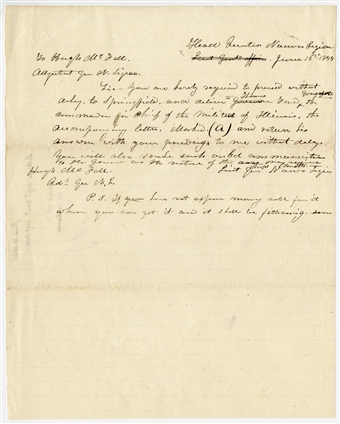 Head Quarters Nauvoo Legion
Lieut Genls Office June 15th 1844
To Hugh McFall
Adjutant Gen N. Legion.
Sir.- You are hereby required to proceed without
delay, to Springfield, and deliver Governor Thomas Ford, the
commander in chief of the Militia of Illinois, the
accompanying letter, Marked (A) and return his
answer with your proceedings to me without delay.
You will also make such verbal communication
to the Governor as the nature of the case may require
Joseph Smith
Hugh McFall Lieut Gen Nauvoo Legion
Adj. Gen N. L.
P. S. If you have not expense money call for it
where you can get it and it shall be forthcoming soon